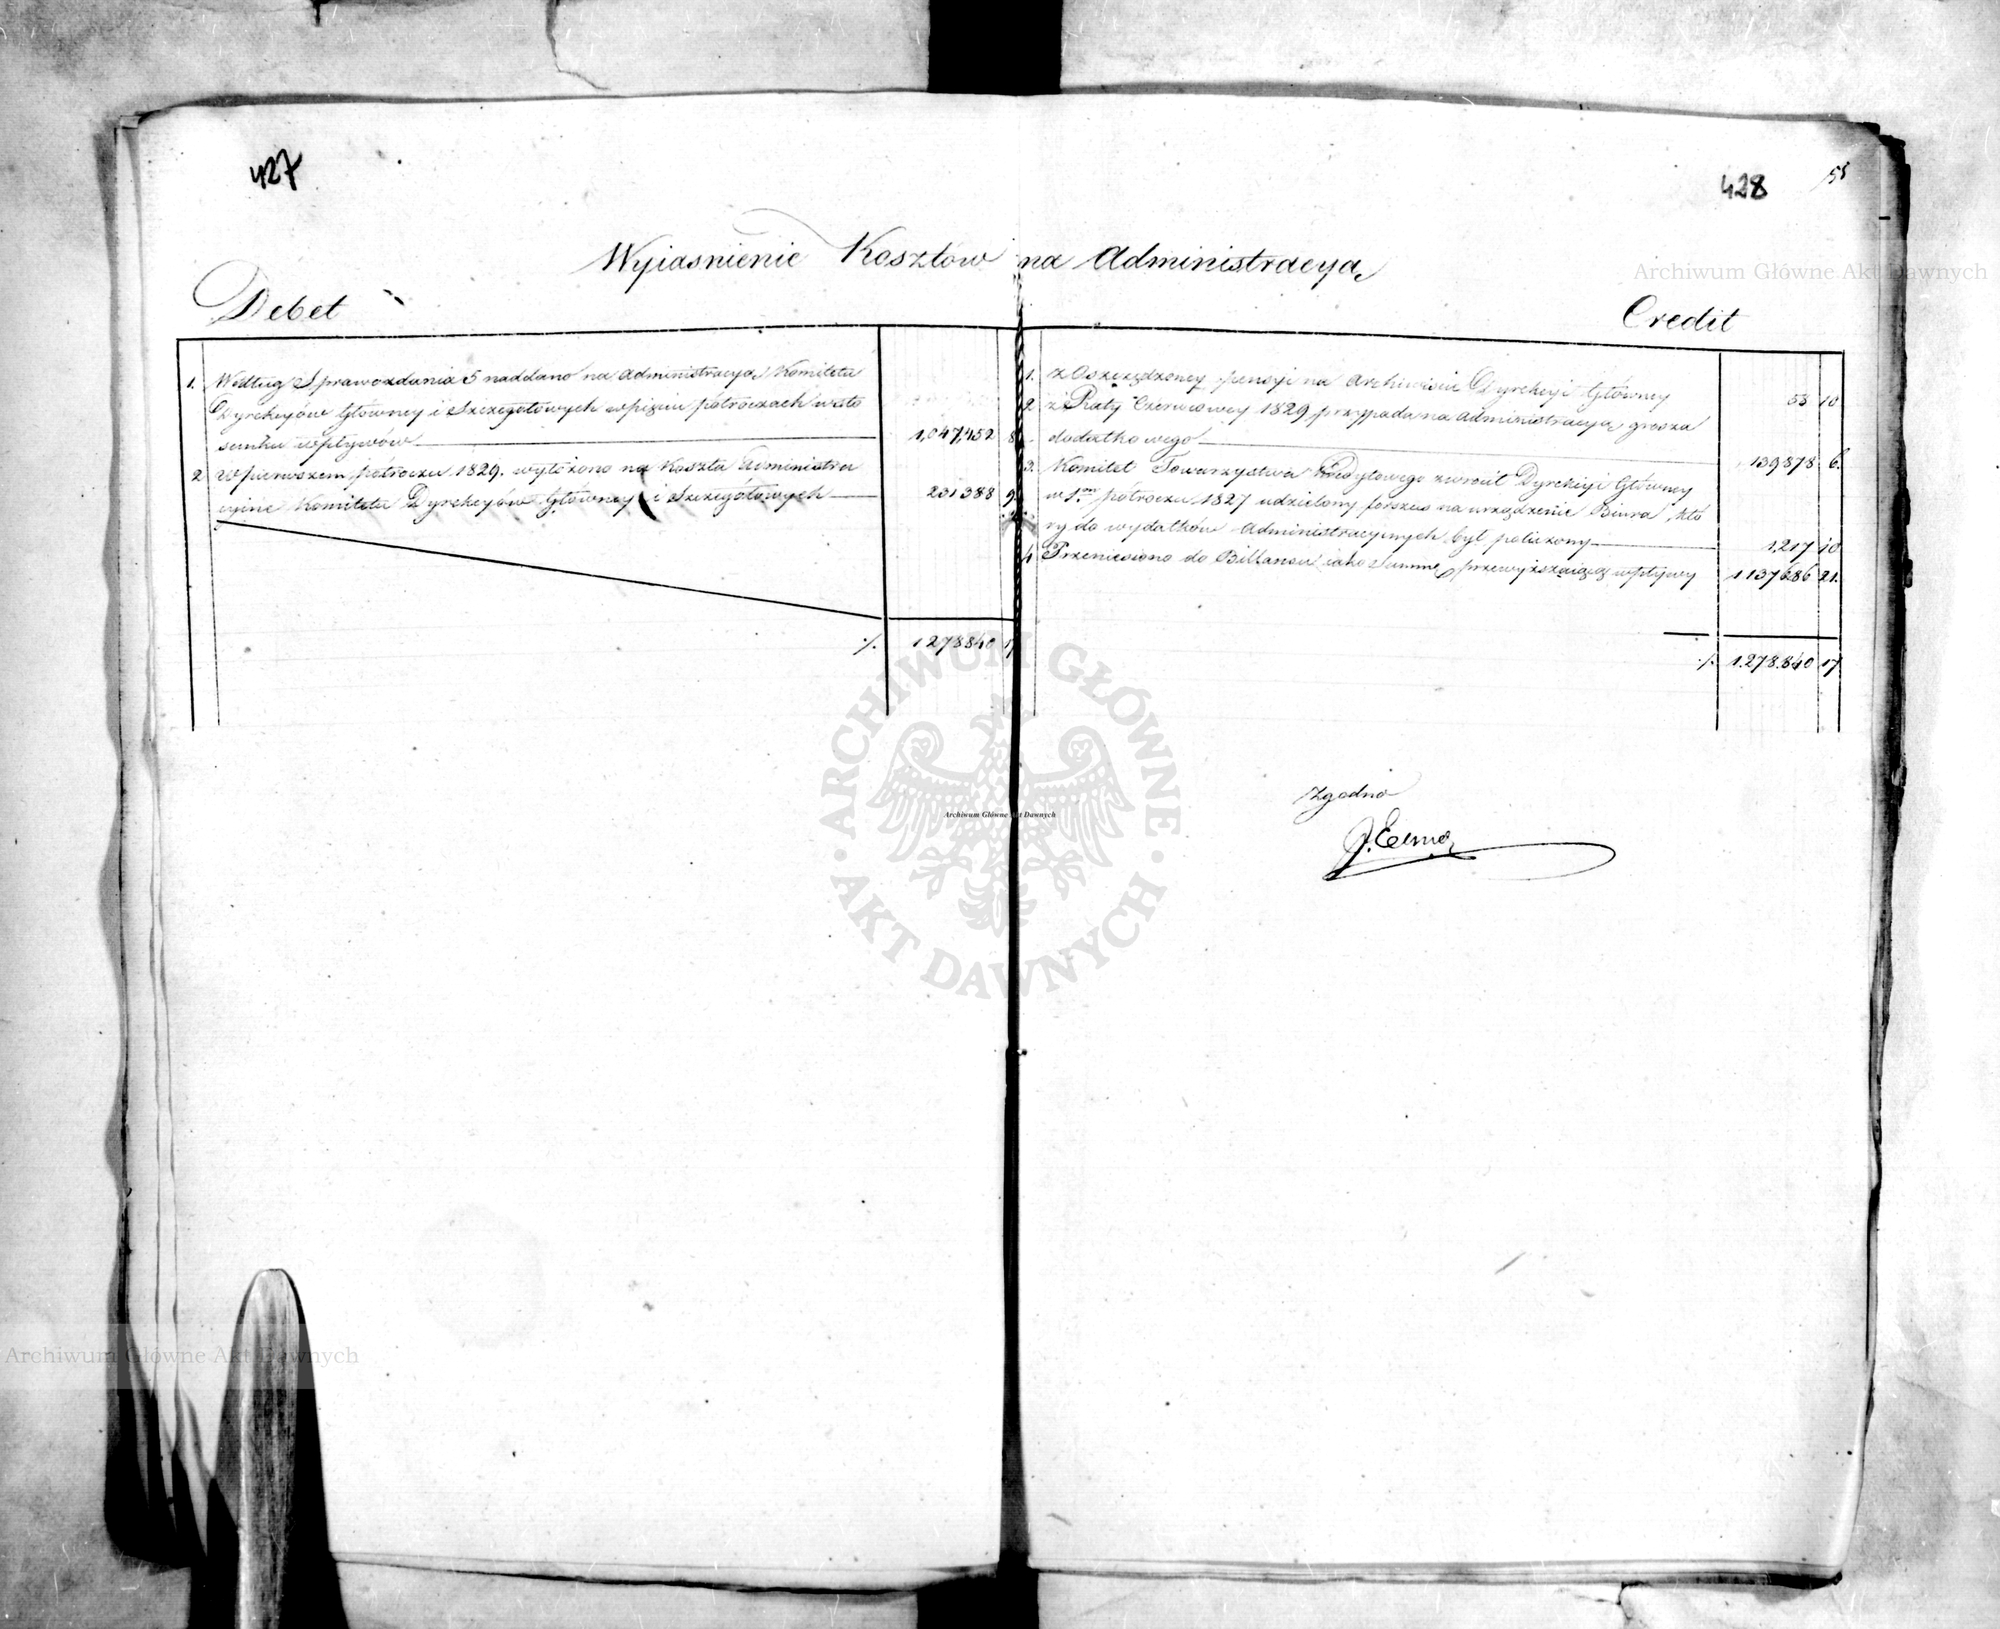 427
428
58
Wyiasnienie Kosztów na Administracyą
Debet
Credit
1. Według Sprawozdania 5 naddano na Administracyą Komitetu
Dyrekcyów Główney i Szczegółowych w pięciu półroczach w sto
sunku wpływów 1,047,452 8
2 W pierwszem półroczu 1829. wyłożono na Koszta Administra
cyine Komitetu Dyrekcyów Główney i Szczegółowych 231388 9
% 1278840 17
1. z Oszczędzoney pensyi na Archiwiście Dyrekcyi Główney 58 10
2 z Raty Czerwcowey 1829 przypada na Administracyą grosza
dodatkowego 139878 6.
3. Komitet Towarzystwa Kredytowego zwrócił Dyrekcyi Główney
w 1.m półroczu 1827 udzielony forszus na urządzenie Biura, któ
ry do wydatków Administracyinych był policzony 1,217 10
4 Przeniesiono do Billansu iako Summę przewyższaiącą wpływy 1.137686 21.
% 1.278.840 17
Zgodno
Archiwum Główne Akt Dawnych
Archiwum Główne Akt Dawnych
ARCHIWUM GŁÓWNE · AKT DAWNYCH ·
Archiwum Główne Akt Dawnych